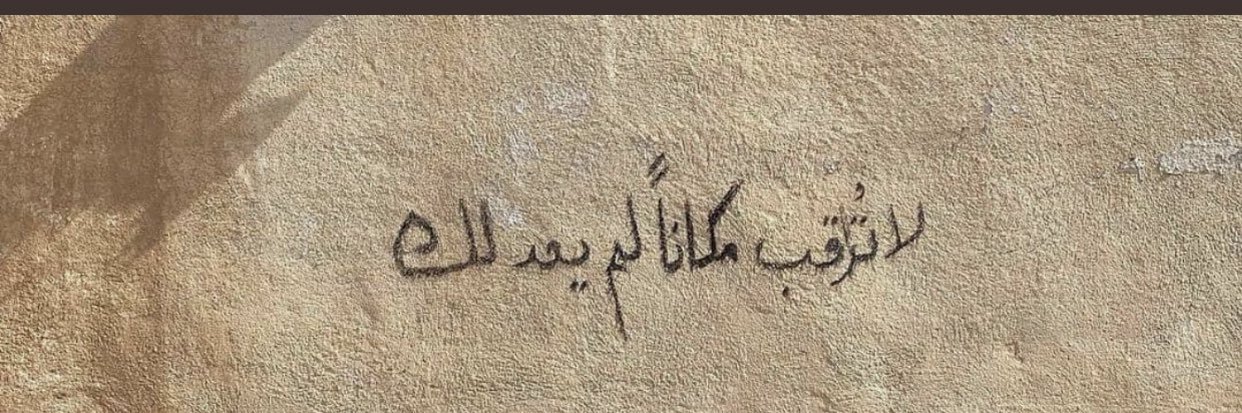 لا تُراقب مكاناً لم يعد لك